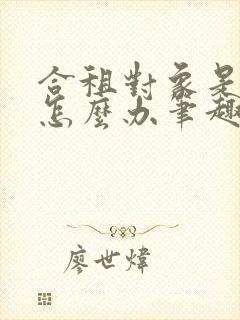 合租對象是
怎麼办筆趣
廖世煒